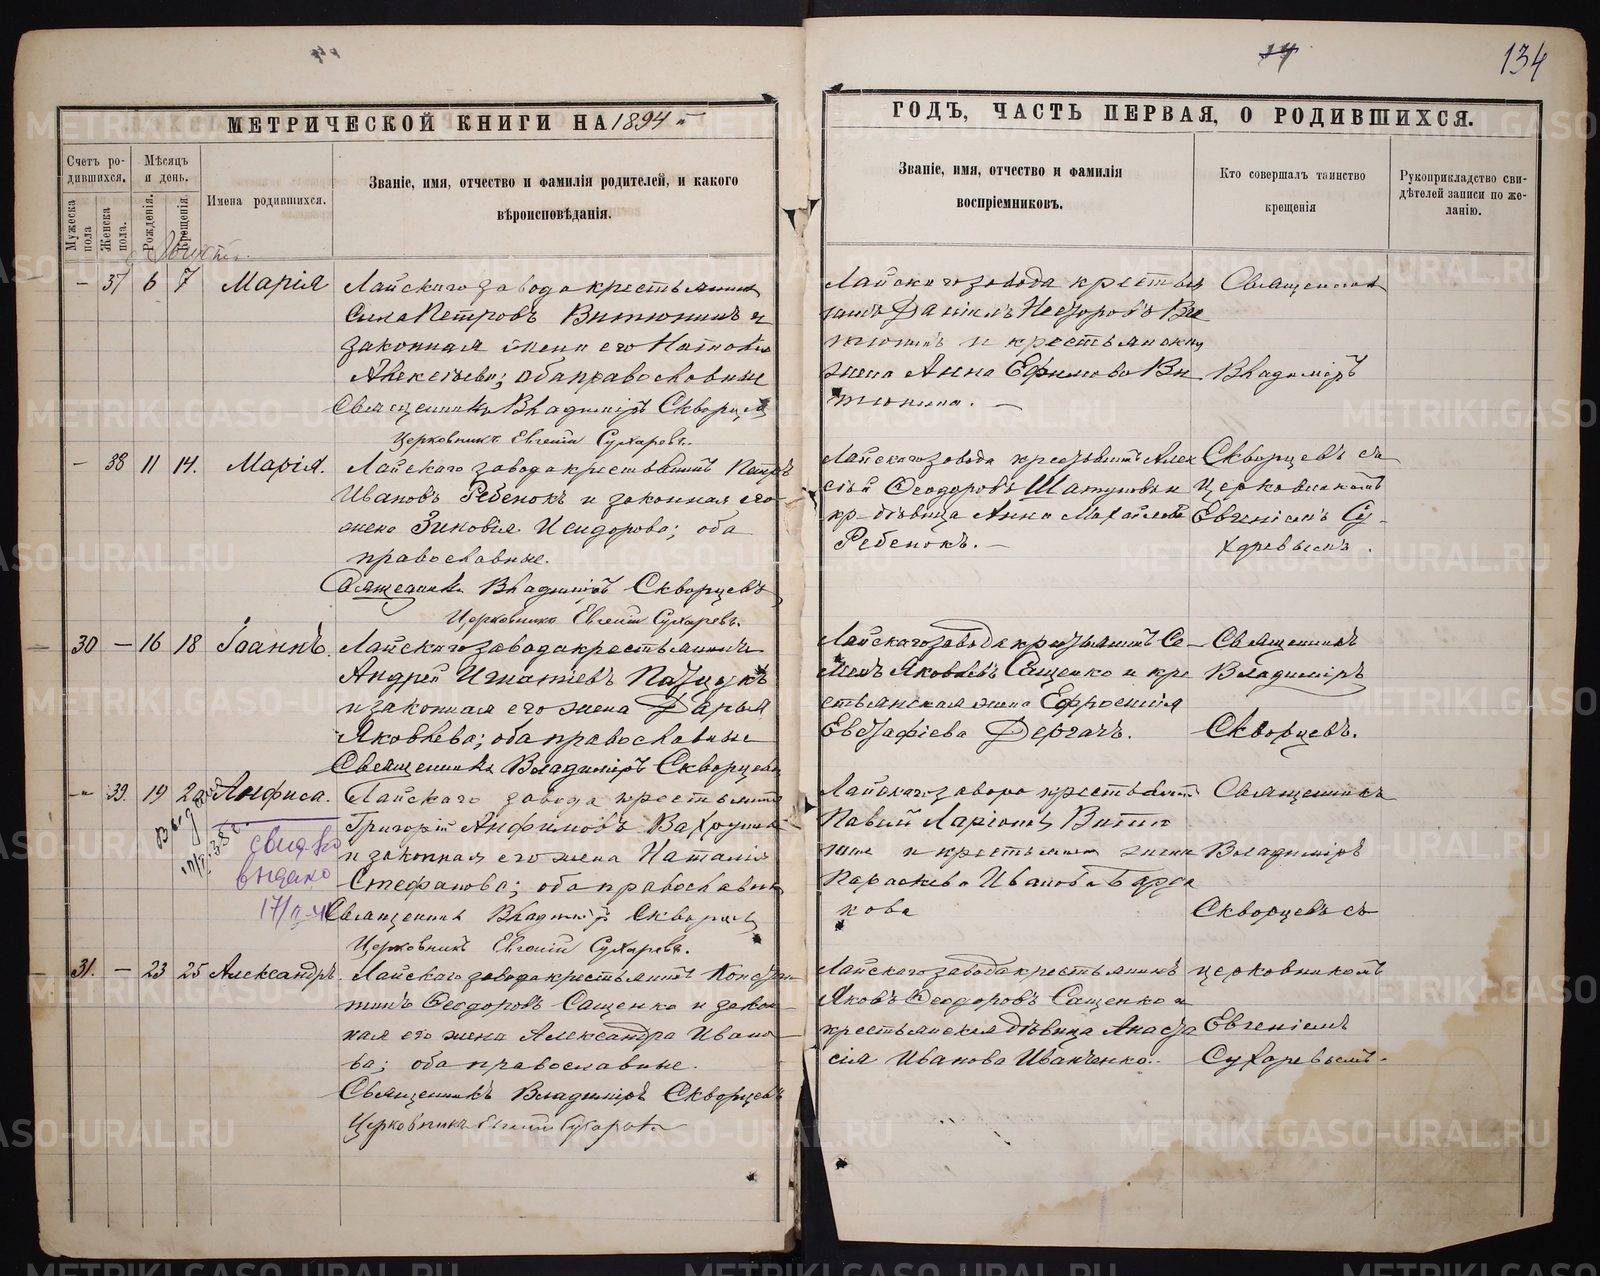 134
МЕТРИЧЕСКОЙ КНИГИ НА 1894 й
ГОДЪ, ЧАСТЬ ПЕРВАЯ, О РОДИВШИХСЯ.
Счетъ ро-
дившихся.
Мѣсяцъ
и день.
Мужеска
пола
Женска
пола.
Рожденія.
Крещенія.
Имена родившихся.
Званіе, имя, отчество и фамилія родителей, и какого
вѣроисповѣданія.
Званіе, имя, отчество и фамилія
воспріемниковъ.
Кто совершалъ таинство
крещенія
Рукоприкладство сви-
дѣтелей записи по же-
ланію.
– 37 6 7 Марія
Лайскаго завода крестьянинъ
Сила Петровъ Витюнинъ и
законная жена его Наталія
Алексѣева; оба православные
Священникъ Владиміръ Скворцевъ
Церковникъ Евгеній Сухаревъ.
Лайскаго завода крестья
нинъ Даніилъ Несторовъ Ви
тюнинъ и крестьянская
жена Анна Ефимова Ви
тюнина. –
Священникъ
Владиміръ
– 38 11 14. Марія.
Лайскаго завода крестьянинъ Петръ
Ивановъ Ребенокъ и законная его
жена Зиновія Исидорова; оба
православные.
Священникъ Владиміръ Скворцевъ
Церковникъ Евгеній Сухаревъ.
Лайскаго завода крестьянинъ Алек
сій Ѳеодоровъ и
кр. дѣвица Анна Михайлова
Ребенокъ. –
Скворцевъ съ
церковникомъ
Евгеніемъ Су-
харевымъ.
30 – 16 18 Іоаннъ.
Лайскаго завода крестьянинъ
Андрей Игнатіевъ
и законная его жена Дарья
Яковлева; оба православные
Священникъ Владиміръ Скворцевъ
Лайскаго завода крестьянинъ Се-
менъ Яковлевъ Сащенко и кре
стьянская жена Ефросинія
Евстафіева Дергачъ.
Священникъ
Владиміръ
Скворцевъ.
–"– 39. 19 20 Анфиса.
свид-во
выдано
Лайскаго завода крестьянинъ
Григорій Анфимовъ
и законная его жена Наталія
Стефанова; оба православные
Священникъ Владиміръ Скворцевъ
Церковникъ Евгеній Сухаревъ.
Лайскаго завода крестьянинъ
Павелъ Ларіоновъ
и крестьянская жена
Параскева Иванова Бурда
кова
Священникъ
Владиміръ
Скворцевъ съ
31. – 23 25 Александръ.
Лайскаго завода крестьянинъ Констан
тинъ Ѳеодоровъ Сащенко и закон
ная его жена Александра Ивано
ва; оба православные.
Священникъ Владиміръ Скворцевъ
Церковникъ Евгеній Сухаревъ
Лайскаго завода крестьянинъ
Яковъ Ѳеодоровъ Сащенко и
крестьянская дѣвица Анаста
сія Иванова Иванченко.
церковникомъ
Евгеніемъ
Сухаревымъ.
METRIKI.GASO-URAL.RU